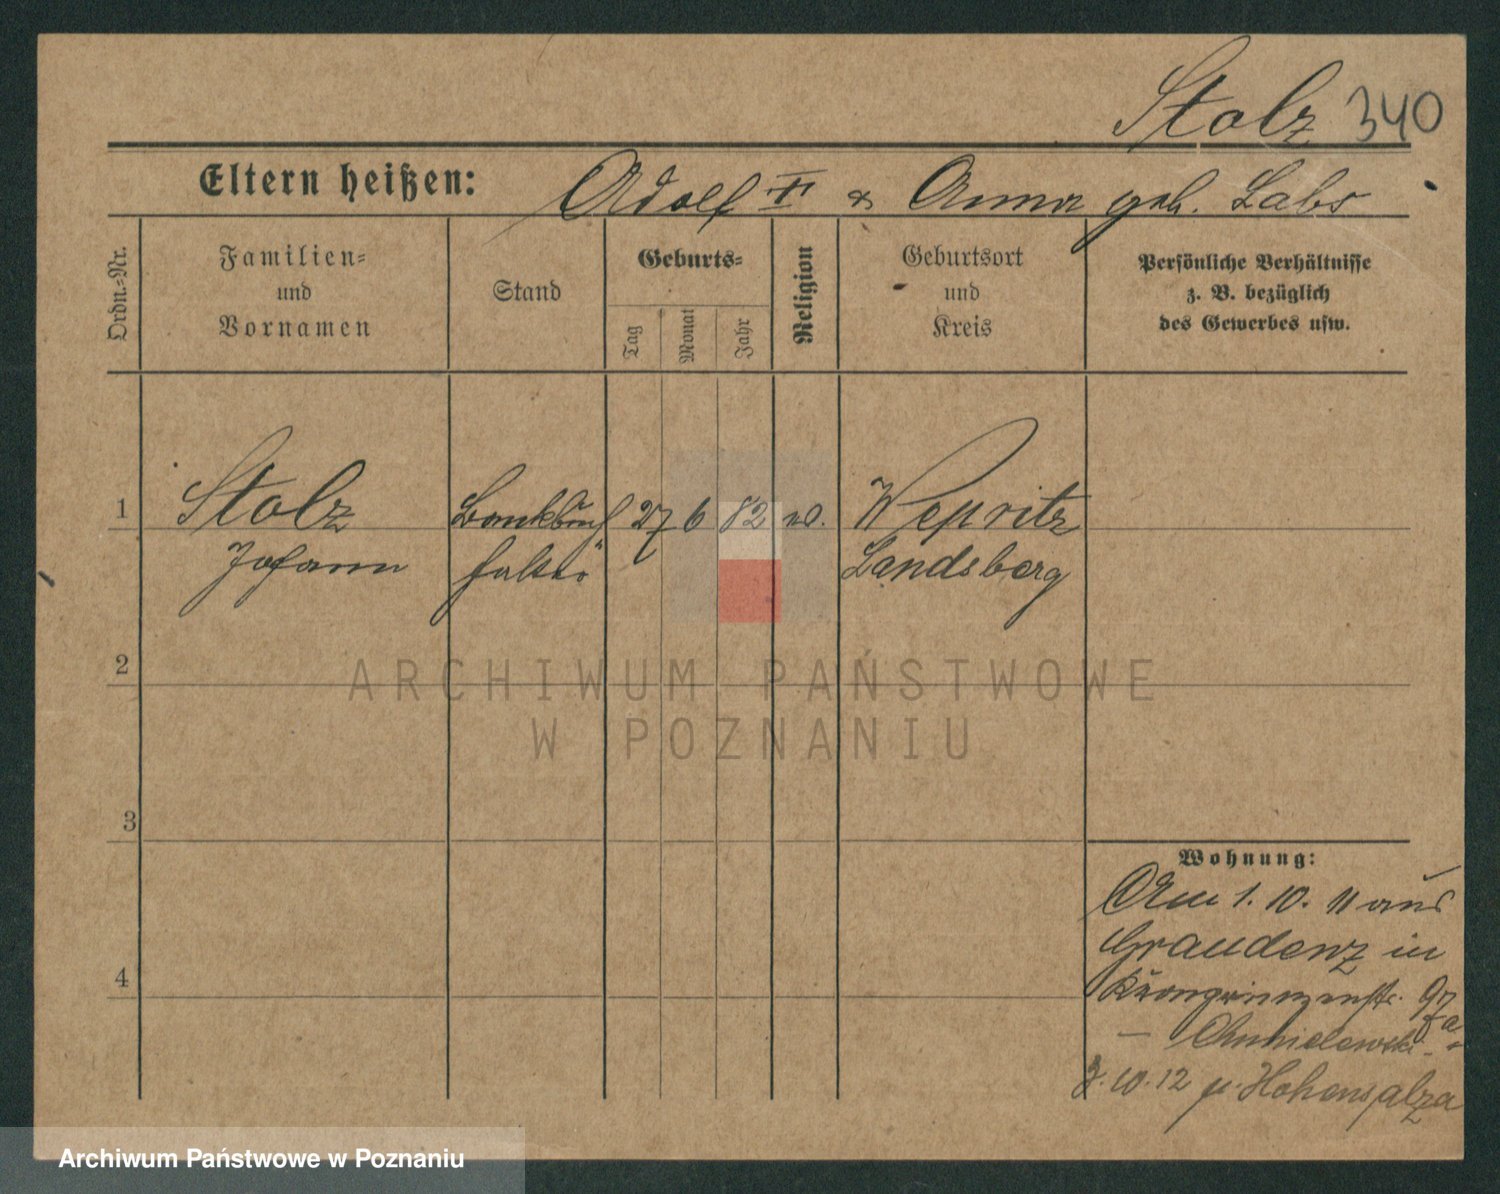 Stolz 340
Eltern heißen: Adolf & Anna geb. Labs
Ordn.-Nr.
Familien-
und
Vornamen
Stand
Geburts-
Tag
Monat
Jahr
Religion
Geburtsort
und
Kreis
Persönliche Verhältnisse
z. B. bezüglich
des Gewerbes usw.
1 Stolz Bankbuch 27 6 82 Wepritz
Johann halter Landsberg
2
3
4
Wohnung:
Am 1. 10. 11 aus
Graudenz in
Kronprinzenstr. 97
a
– Chmielewski –
10. 12 Hohensalza
ARCHIWUM PAŃSTWOWE
W POZNANIU
Archiwum Państwowe w Poznaniu